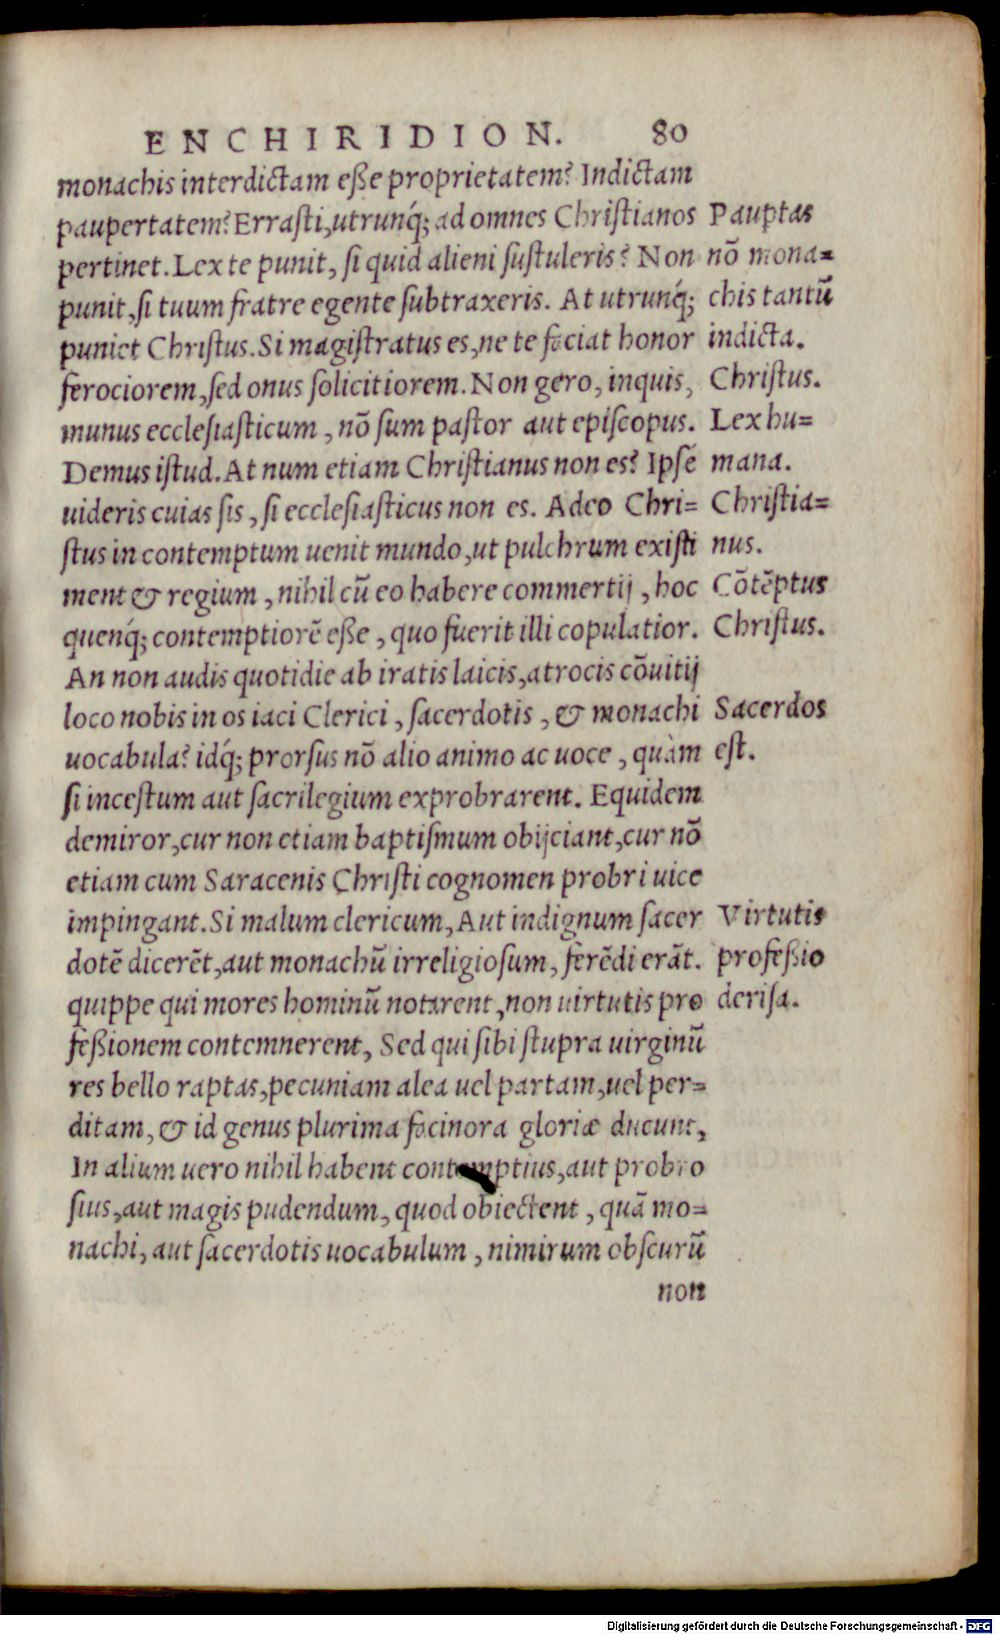 ENCHIRIDION. 80
monachis interdictam eße proprietatem? Indictam
paupertatem? Errasti, utrunq́; ad omnes Christianos
pertinet. Lex te punit, si quid alieni sustuleris? Non
punit, si tuum fratre egente subtraxeris. At utrunq́;
puniet Christus. Si magistratus es, ne te faciat honor
ferociorem, sed onus solicitiorem. Non gero, inquis,
munus ecclesiasticum, nõ sum pastor aut episcopus.
Demus istud. At num etiam Christianus non es? Ipsẽ
uideris cuias sis, si ecclesiasticus non es. Adeo Chri=
stus in contemptum uenit mundo, ut pulchrum existi
ment & regium, nihil cũ eo habere commertij, hoc
quenq́; contemptiorẽ eße, quo fuerit illi copulatior.
An non audis quotidie ab iratis laicis, atrocis cõuitij
loco nobis in os iaci Clerici, sacerdotis, & monachi
uocabula? idq́; prorsus nõ alio animo ac uoce, quàm
si incestum aut sacrilegium exprobrarent. Equidem
demiror, cur non etiam baptismum obijciant, cur nõ
etiam cum Saracenis Christi cognomen probri uice
impingant. Si malum clericum, Aut indignum sacer
dotẽ dicerẽt, aut monachũ irreligiosum, ferẽdi erãt.
quippe qui mores hominũ notarent, non uirtutis pro
feßionem contemnerent, Sed qui sibi stupra uirginũ
res bello raptas, pecuniam alea uel partam, uel per=
ditam, & id genus plurima facinora gloriæ ducunt,
In alium uero nihil habent contemptius, aut probro
sius, aut magis pudendum, quod obiectent, quã mo=
nachi, aut sacerdotis uocabulum, nimirum obscurũ
non
Pauptas
nõ mona=
chis tantũ
indicta.
Christus.
Lex hu=
mana.
Christia=
nus.
Cõtẽptus
Christus.
Sacerdos
est.
Virtutis
profeßio
derisa.
Digitalisierung gefördert durch die Deutsche Forschungsgemeinschaft - DFG